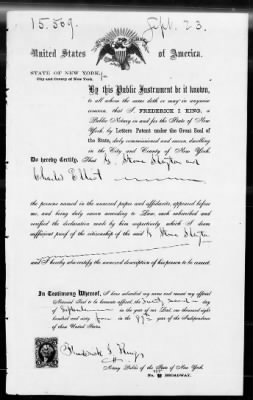 15.509. Sept. 23.
United States of America.
STATE OF NEW YORK,
City and County of New York.
By this Public Instrument be it known,
to all whom the same doth or may in anywise
concern, that I, FREDERICK I. KING,
Public Notary in and for the State of New
York, by Letters Patent under the Great Seal of
the State, duly commissioned and sworn, dwelling
in the City and County of New York.
Do hereby Certify, That G. Stone and
Charles Elliot
the persons named in the annexed papers and affidavits, appeared before
me, and being duly sworn according to Law, each subscribed and
verified the declaration made by him respectively which I deem
sufficient proof of the citizenship of the said G. Stone
and I hereby also certify the annexed description of his person to be correct.
In Testimony Whereof, I have subscribed my name and caused my official
Notarial Seal to be hereunto affixed, the Twenty second day
of September in the year of our Lord, one thousand eight
hundred and sixty four in the 89th year of the Independence
of these United States.
Frederick I. King
Notary Public of the State of New York.
BROADWAY.